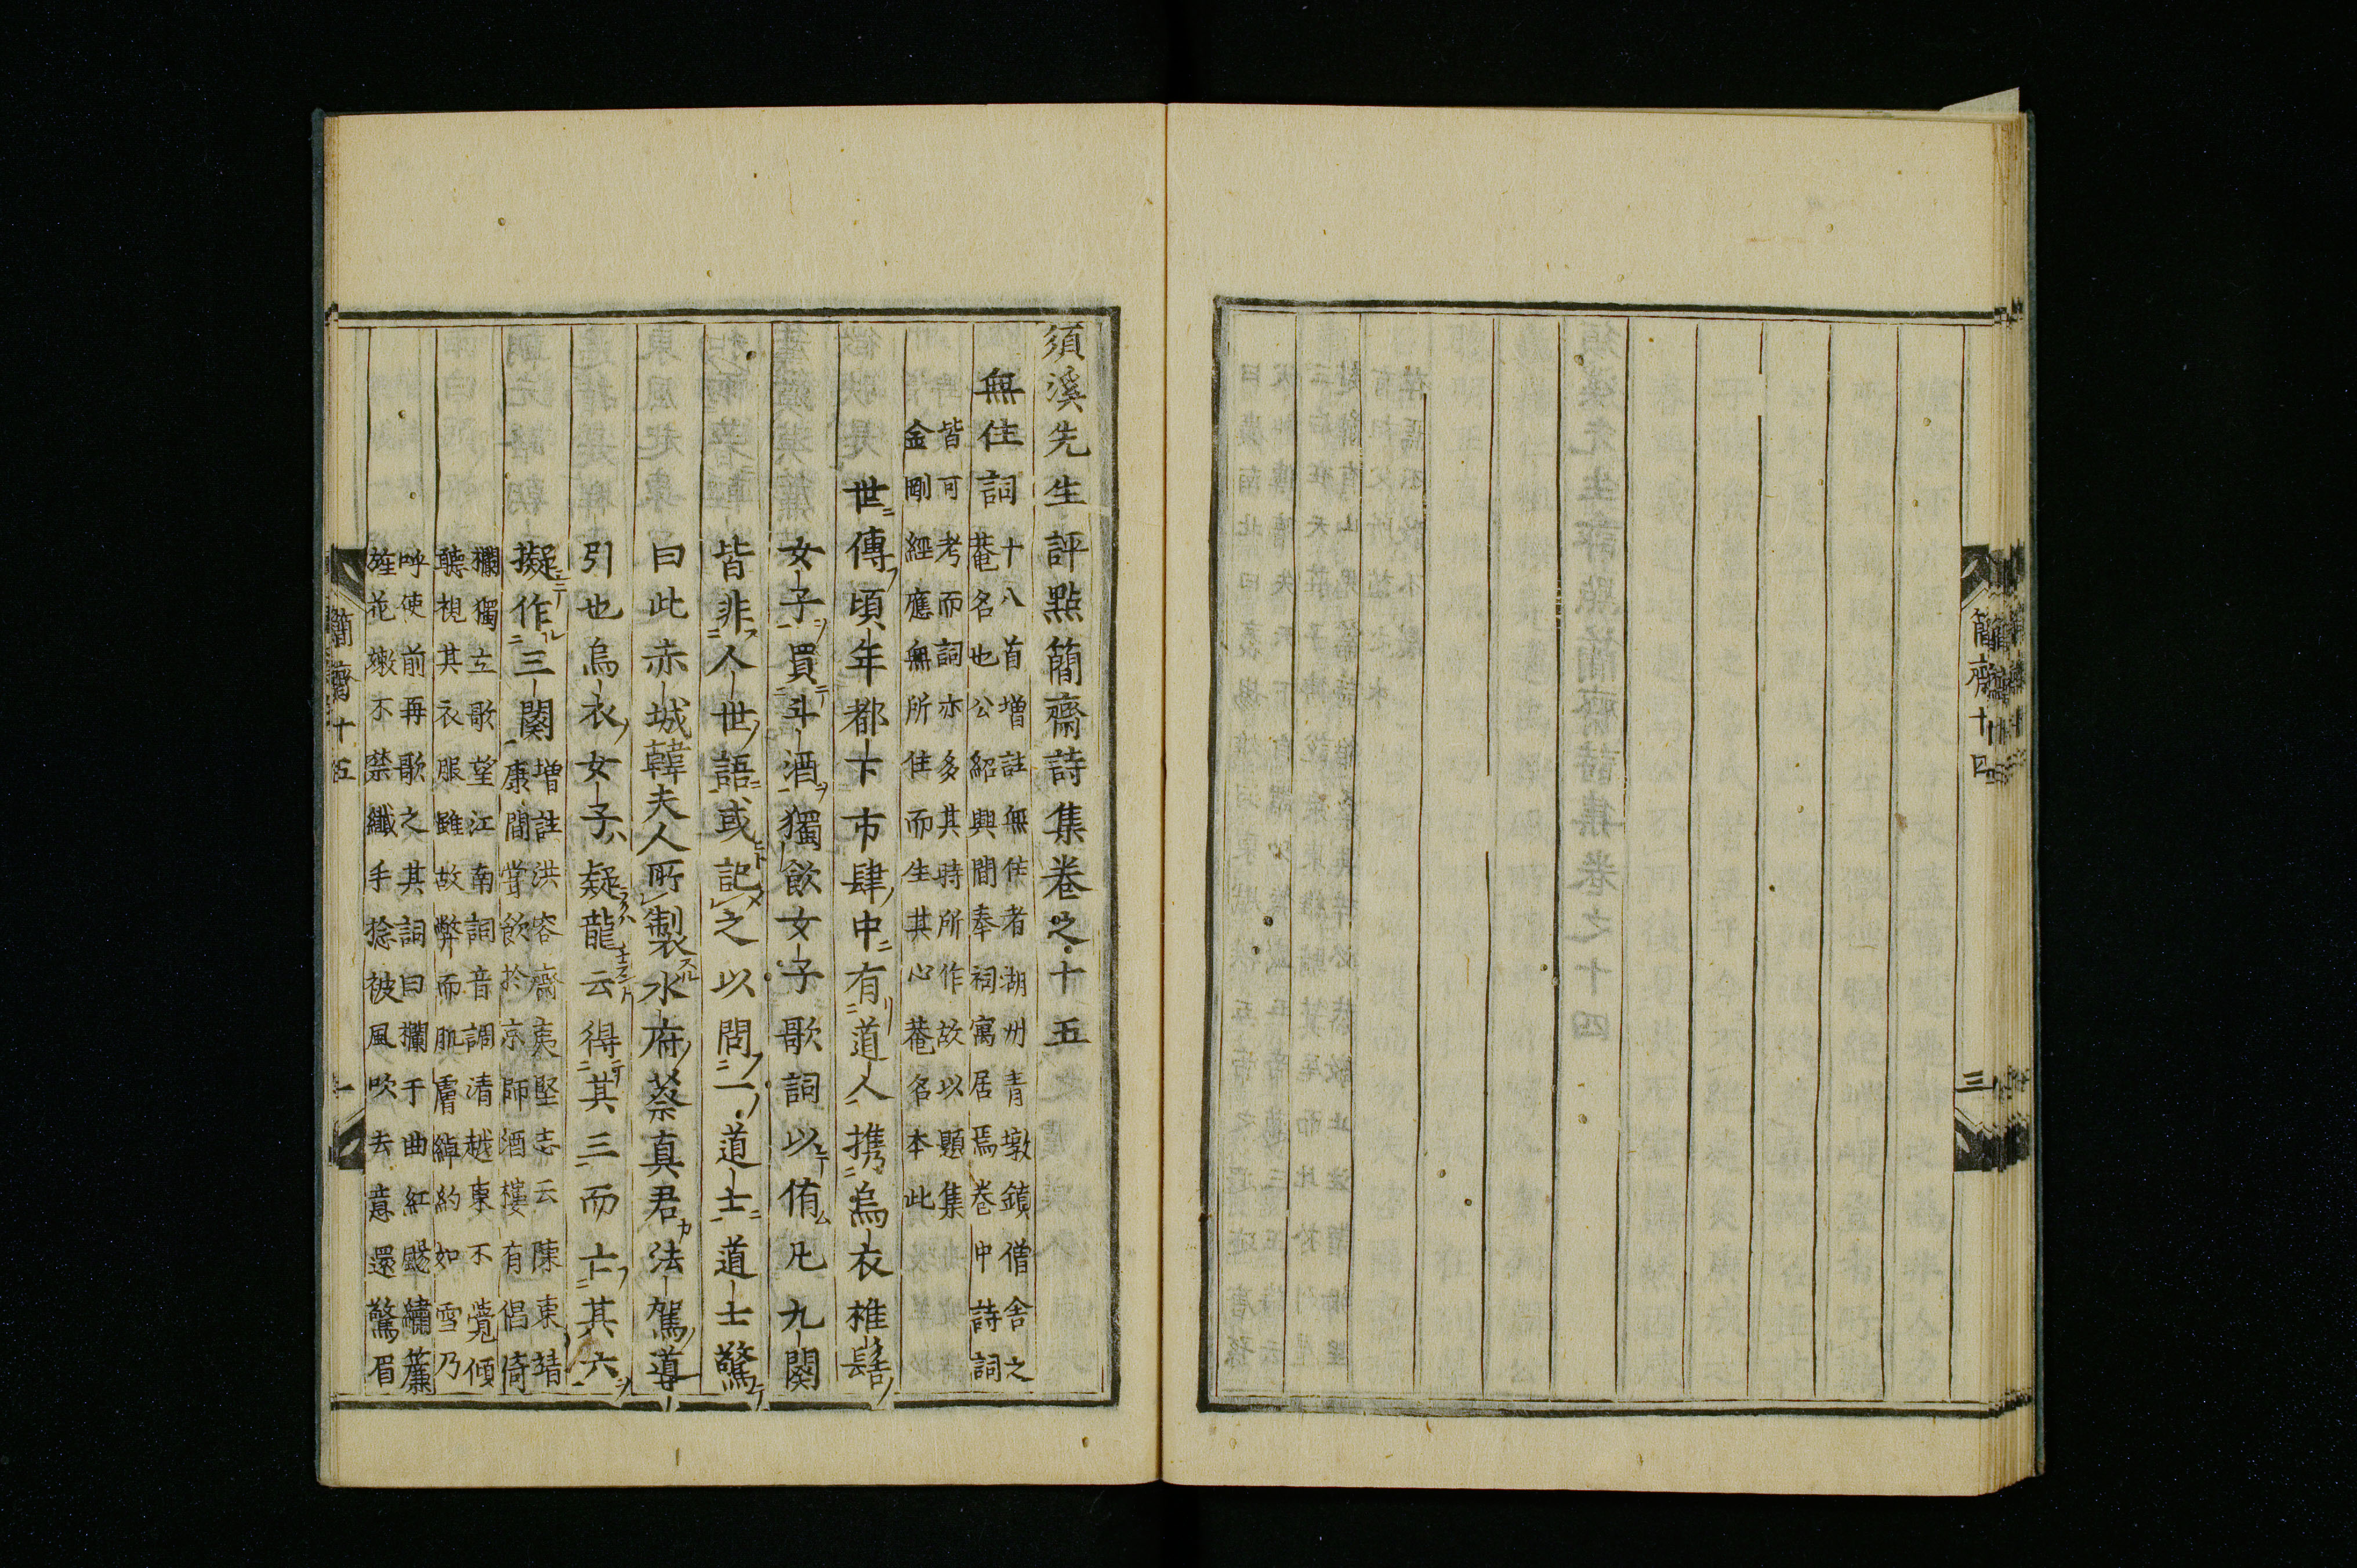 簡齋十四
三
須溪先生評點簡齋詩集卷之十五
無住詞
十八首增註無住者湖州青墩鎮僧舍之
菴名也公紹興間奉祠寓居焉卷中詩詞
皆可考而詞亦多其時所作故以題集
金剛經應無所住而生其心菴名本此
世傳頃年都下市肆中有道人携烏衣椎髻
女子買斗酒獨飲女子歌詞以侑凡九闋
皆非人世語或記之以問一道士道士驚
曰此赤城韓夫人所製水府蔡真君法駕導
引也烏衣女子疑龍云得其三而亡其六
擬作三闋
增註洪容齋夷堅志云陳東靖
康間甞飲於京師酒樓有倡倚
欄獨立歌望江南詞音調清越東不覺傾
聽視其衣服雖故弊而肌膚綽約如雪乃
呼使前再歌之其詞曰闌干曲紅颺繡簾
旌花嫩不禁纖手捻被風吹去意還驚眉
簡齋十五
一